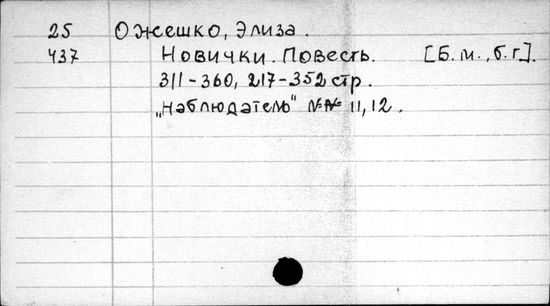 25 Ожешко, Элиза.
437 Новички. Повесть. [Б.м., б.г].
311-360, 217-352 стр.
„Наблюдатель" №№ 11, 12.